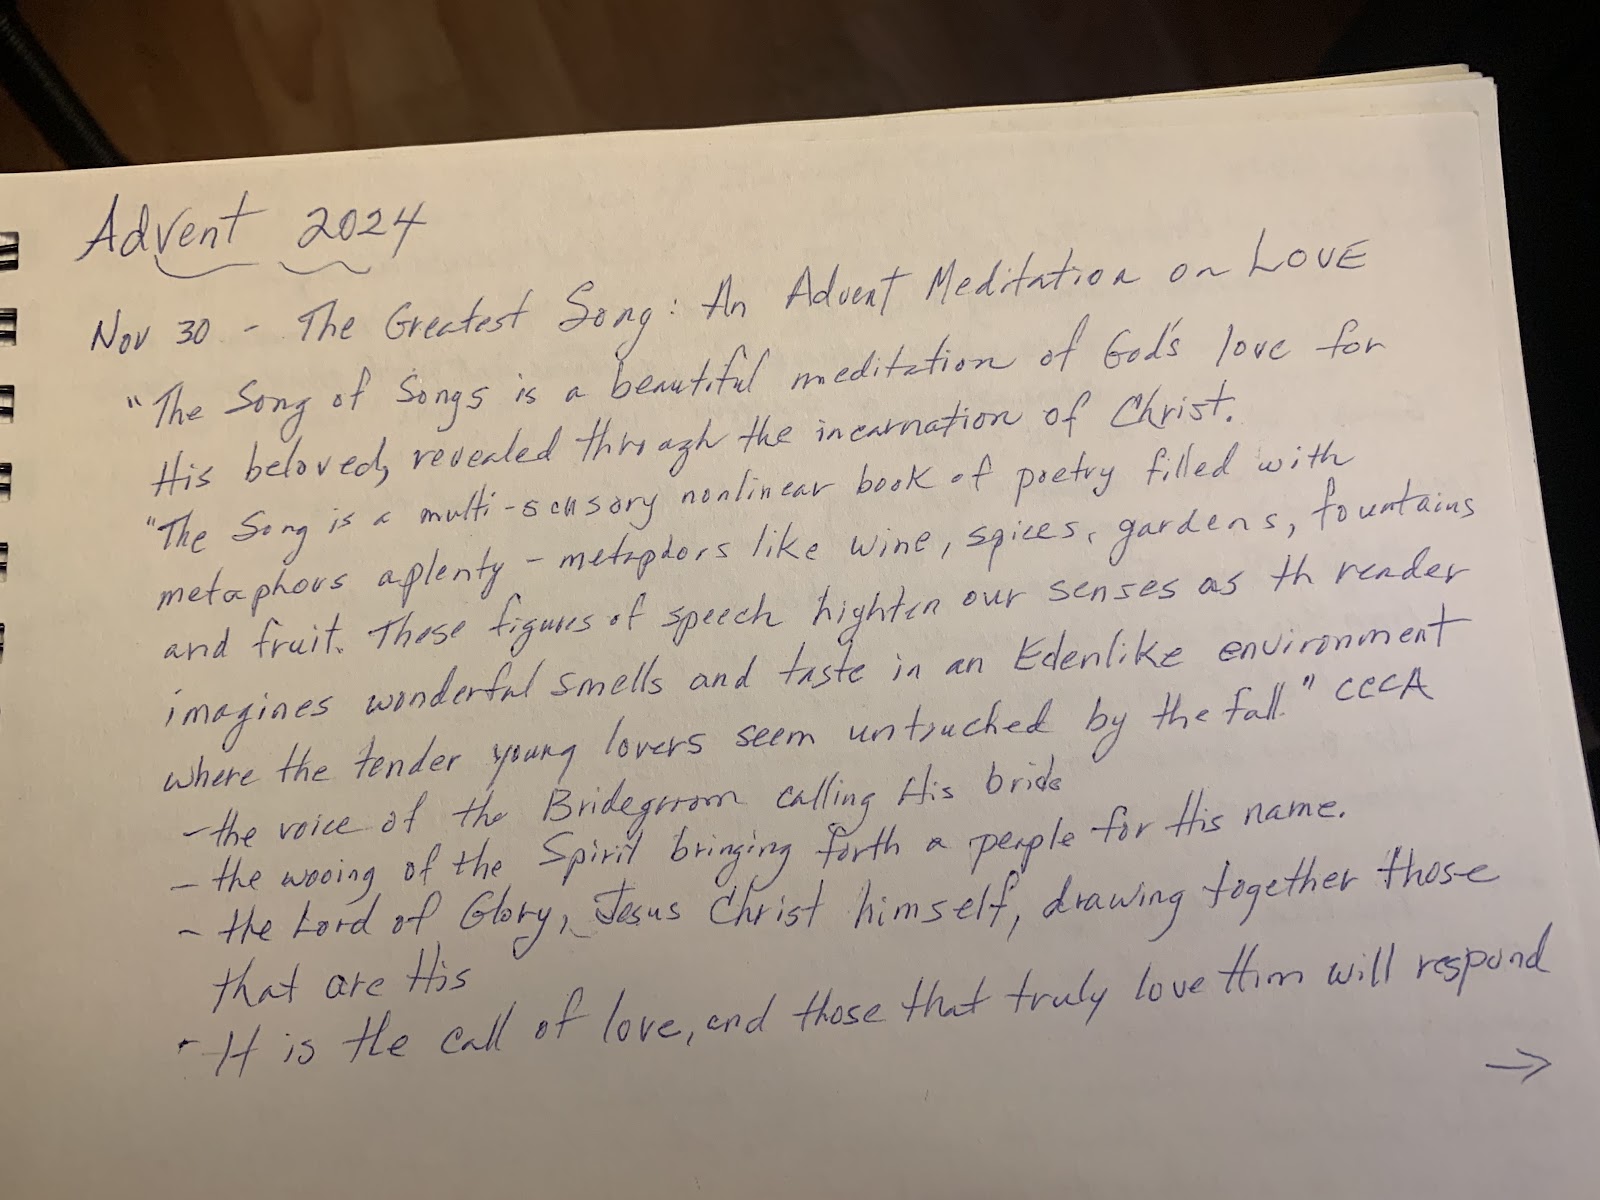 Advent 2024
Nov 30 - The Greatest Song: An Advent Meditation on LOVE
"The Song of Songs is a beautiful meditation of God's love for
His beloved, revealed through the incarnation of Christ.
"The Song is a multi-sensory nonlinear book of poetry filled with
metaphors aplenty - metaphors like wine, spices, gardens, fountains
and fruit. These figures of speech highten our senses as th reader
imagines wonderful smells and taste in an Edenlike environment
where the tender young lovers seem untouched by the fall." CCCA
- the voice of the Bridegroom calling His bride
- the wooing of the Spirit bringing forth a people for His name.
- the Lord of Glory, Jesus Christ himself, drawing together those
that are His
- It is the call of love, and those that truly love Him will respond
→